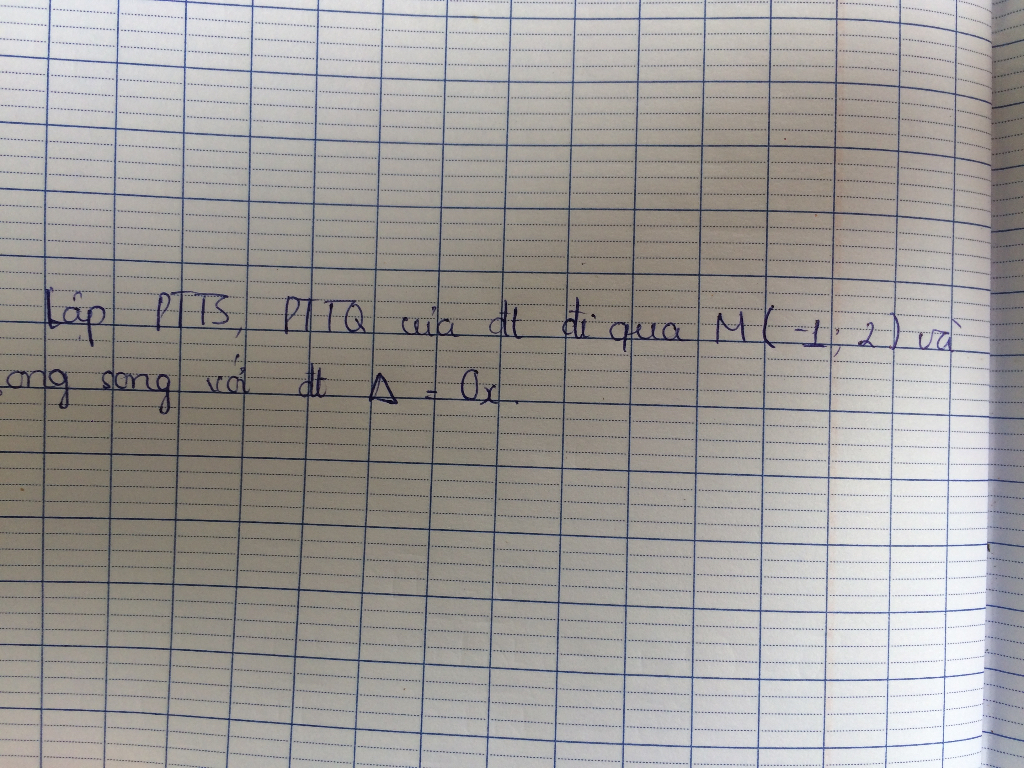 Lập PTTS, PTTQ của đt đi qua M(-1; 2) và
ong song với đt Δ = Ox.